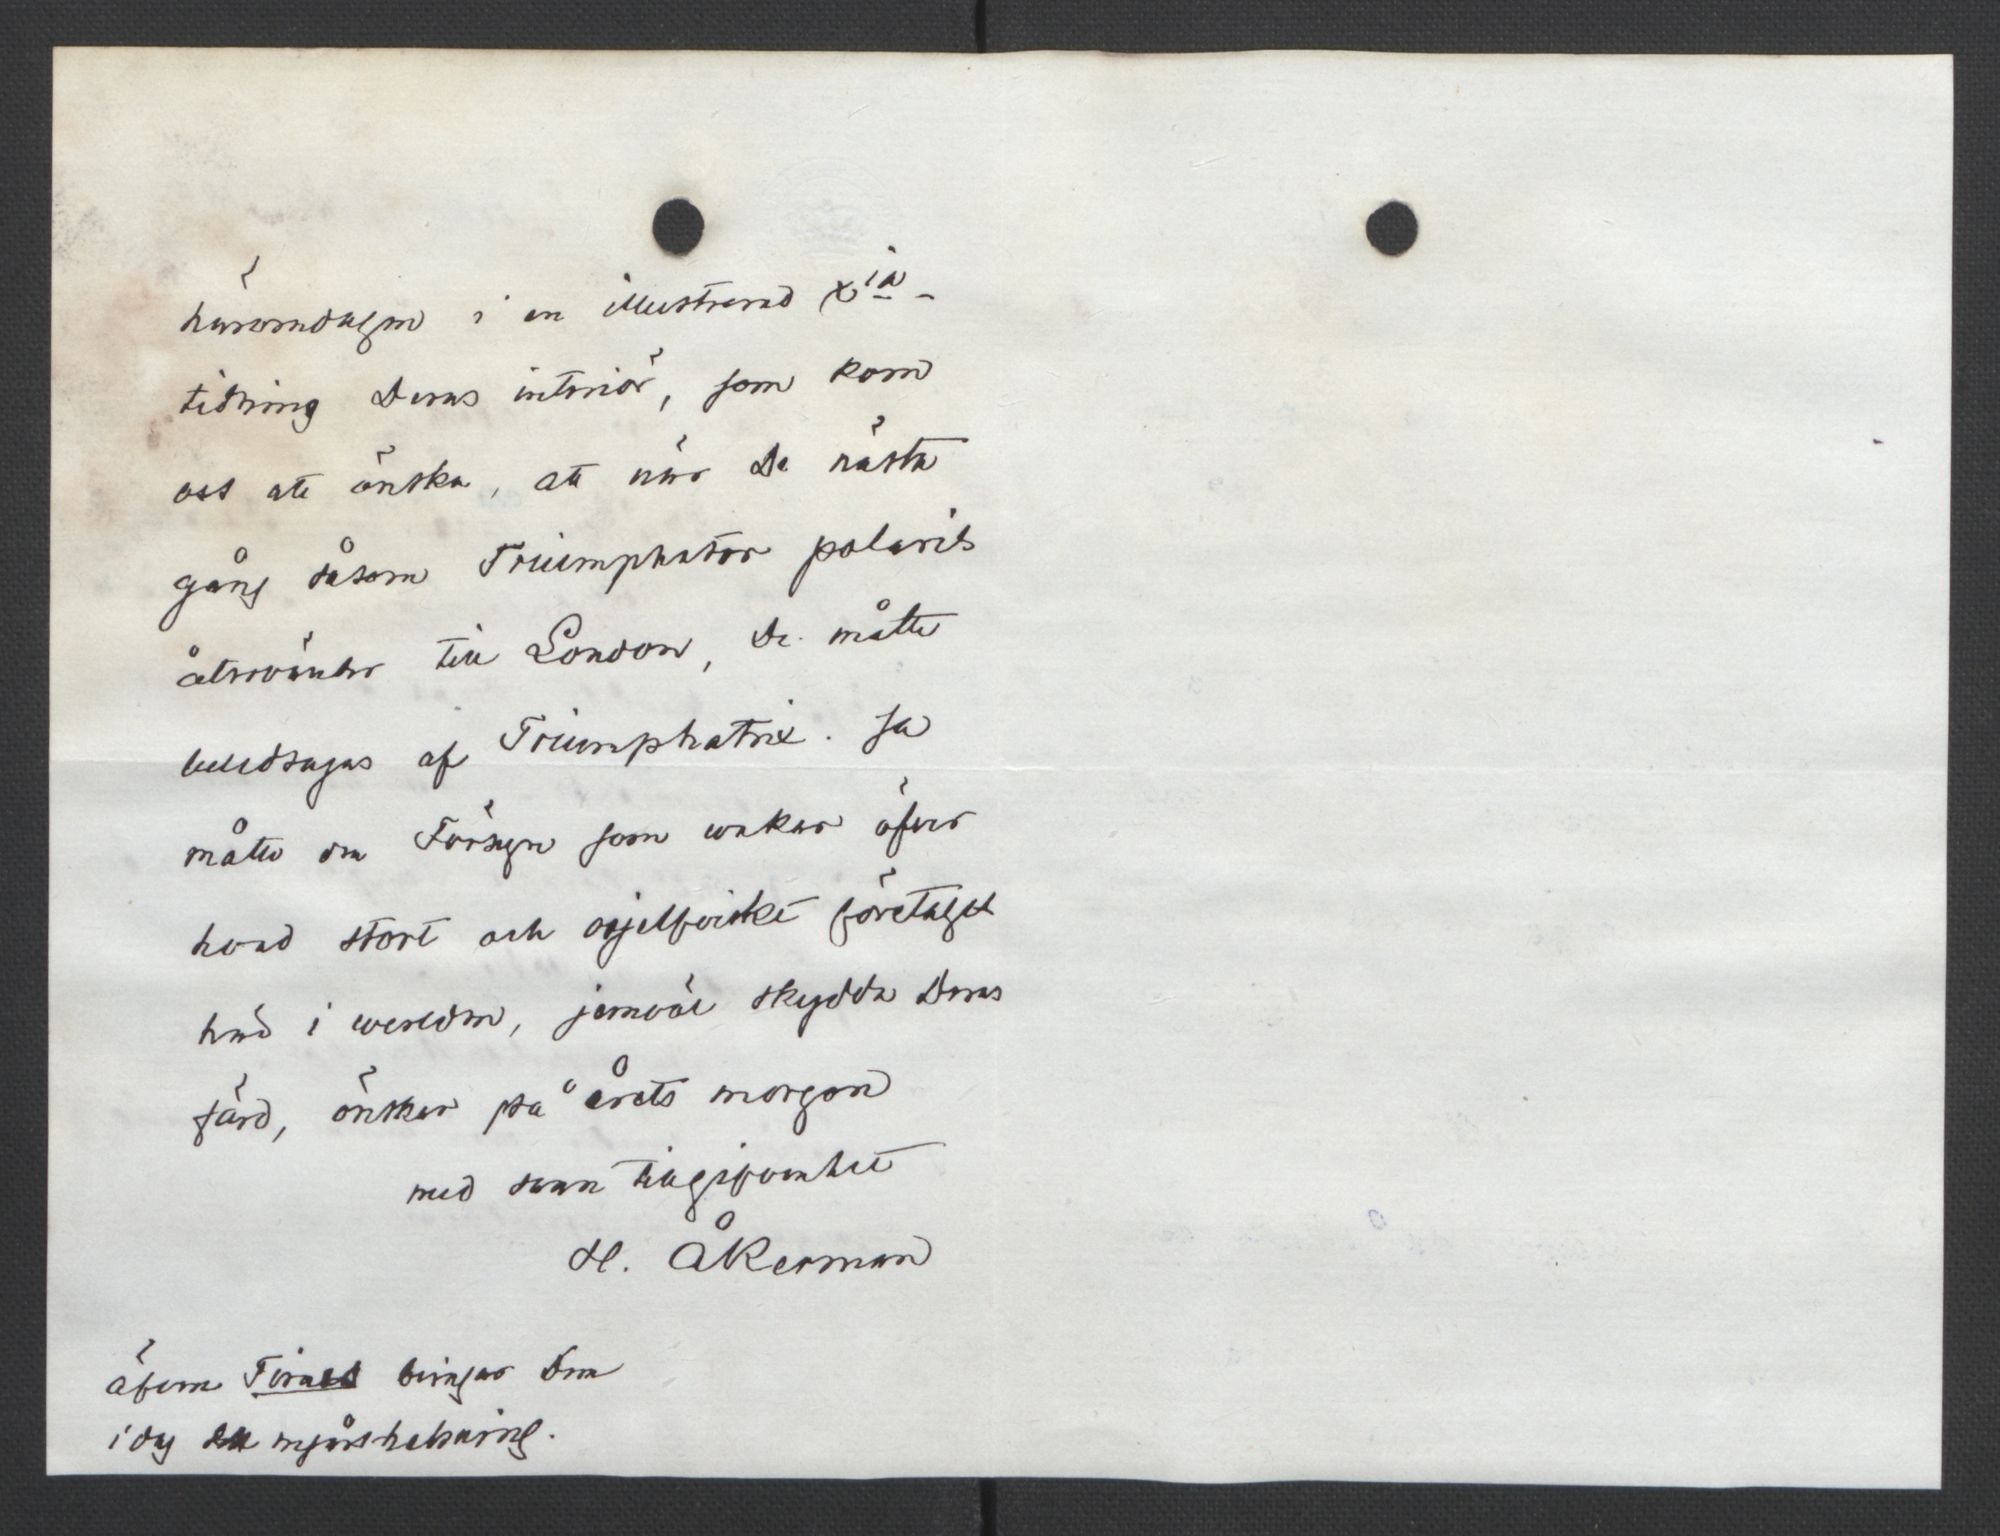 häromdagen i en illustrerad Xia-
tidning Deras interiör, som kom
oss att önska, att när De nästa
gång såsom Triumphator polaris
återvänder till London, De måtte
beledsagas af Triumphatrix. Ja
måtte den Försyn som wakar öfver
hvad stort och osjelfviskt företaget
här i werlden, jemväl skydda Deras
färd, önskar på årets morgon
med sann tillgifvenhet
H. Åkerman
äfven bringar Dem
i dag sin nyårshelsning.